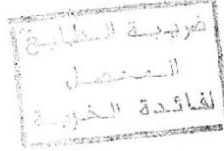 ضريبة الطابع
المتحصل
لفائدة الخزينة